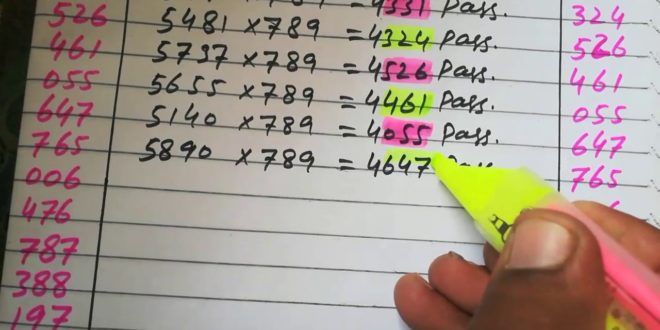 526
461
055
647
765
006
476
787
388
197
=4331 Pass.
5481 ×789 =4324 Pass.
5737 ×789 =4526 Pass.
5655 ×789 =4461 Pass.
5140 ×789 =4055 Pass.
5890 ×789 =4647
324
526
461
055
647
765